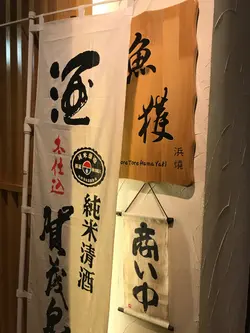 酒
本仕込
純米清酒
賀茂泉
魚獲
浜焼
ore Tore Hama Yaki
商い中